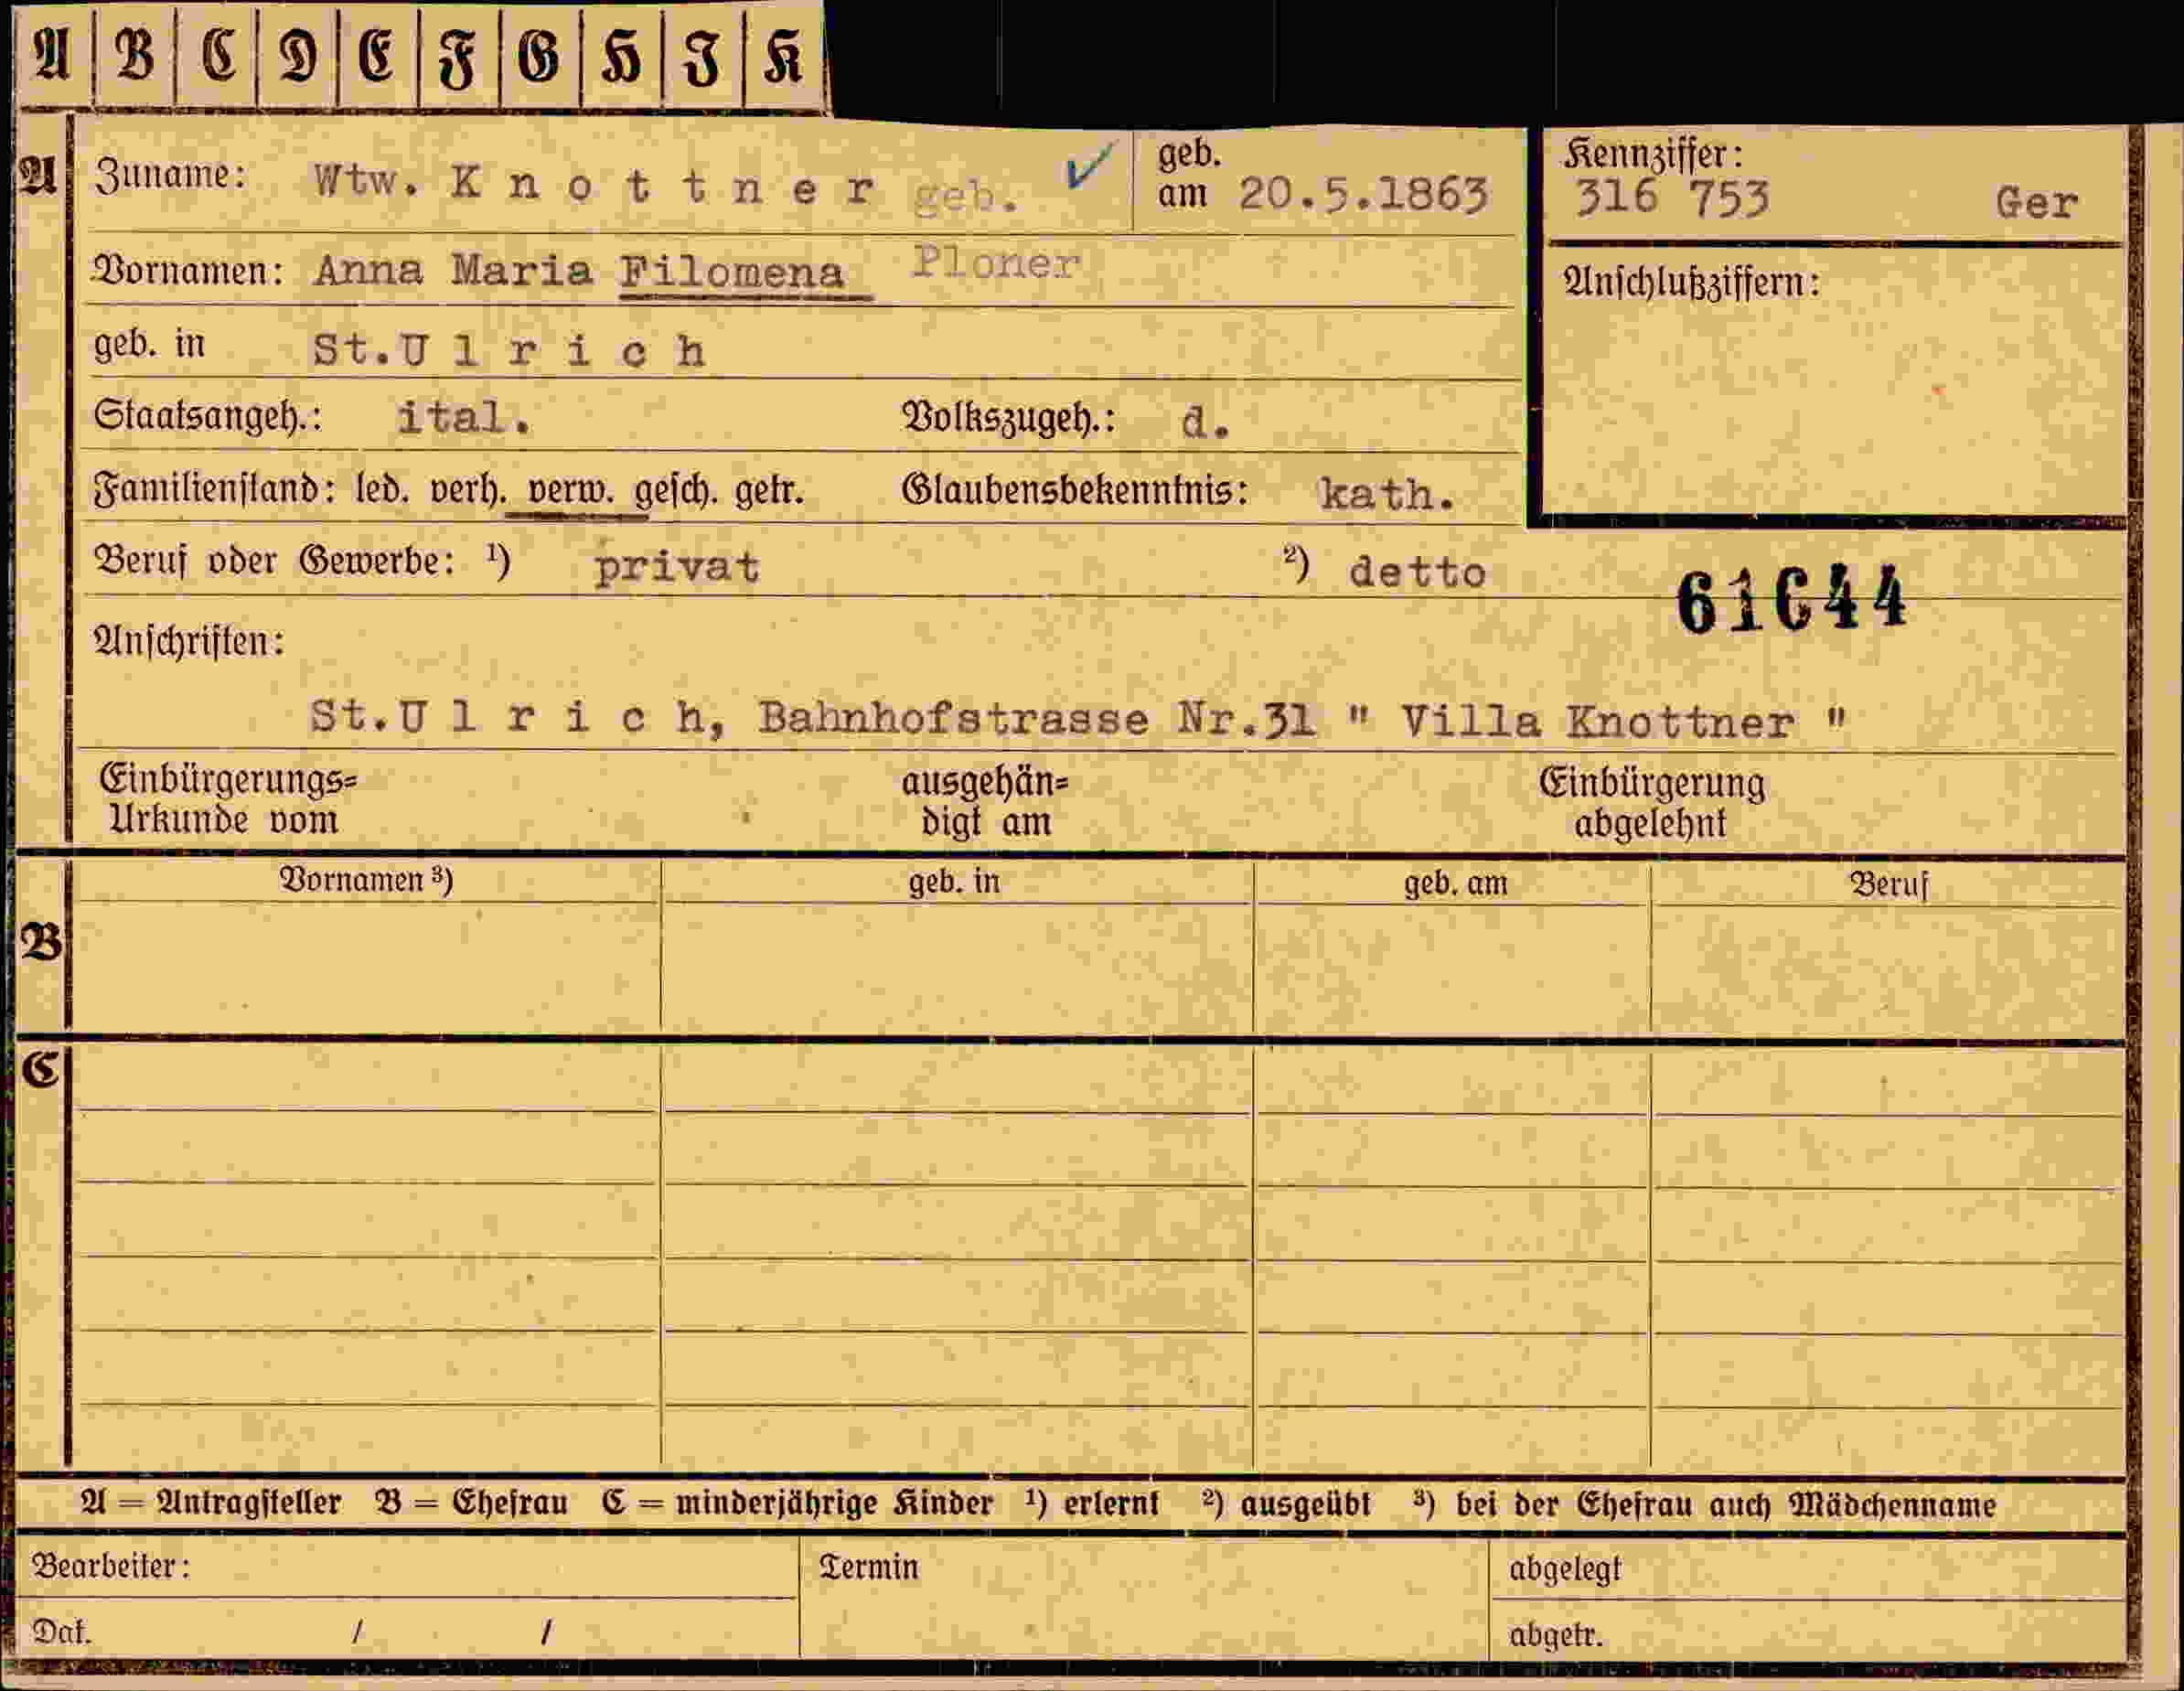 A B C D E F G H I K
A Zuname: Wtw. K n o t t n e r geb. ✓ geb. am 20.5.1863 Kennziffer: 316 753 Ger
Vornamen: Anna Maria Filomena Ploner Anschlußziffern:
geb. in St.U l r i c h
Staatsangeh.: ital. Volkszugeh.: d.
Familienstand: led. verh. verw. gesch. getr. Glaubensbekenntnis: kath.
Beruf oder Gewerbe: ¹) privat ²) detto
61644
Anschriften:
St.U l r i c h, Bahnhofstrasse Nr.31 " Villa Knottner "
Einbürgerungs= ausgehän= Einbürgerung
Urkunde vom digt am abgelehnt
Vornamen ³) geb. in geb. am Beruf
B
C
A = Antragsteller B = Ehefrau C = minderjährige Kinder ¹) erlernt ²) ausgeübt ³) bei der Ehefrau auch Mädchenname
Bearbeiter: Termin abgelegt
Dat. / / abgetr.